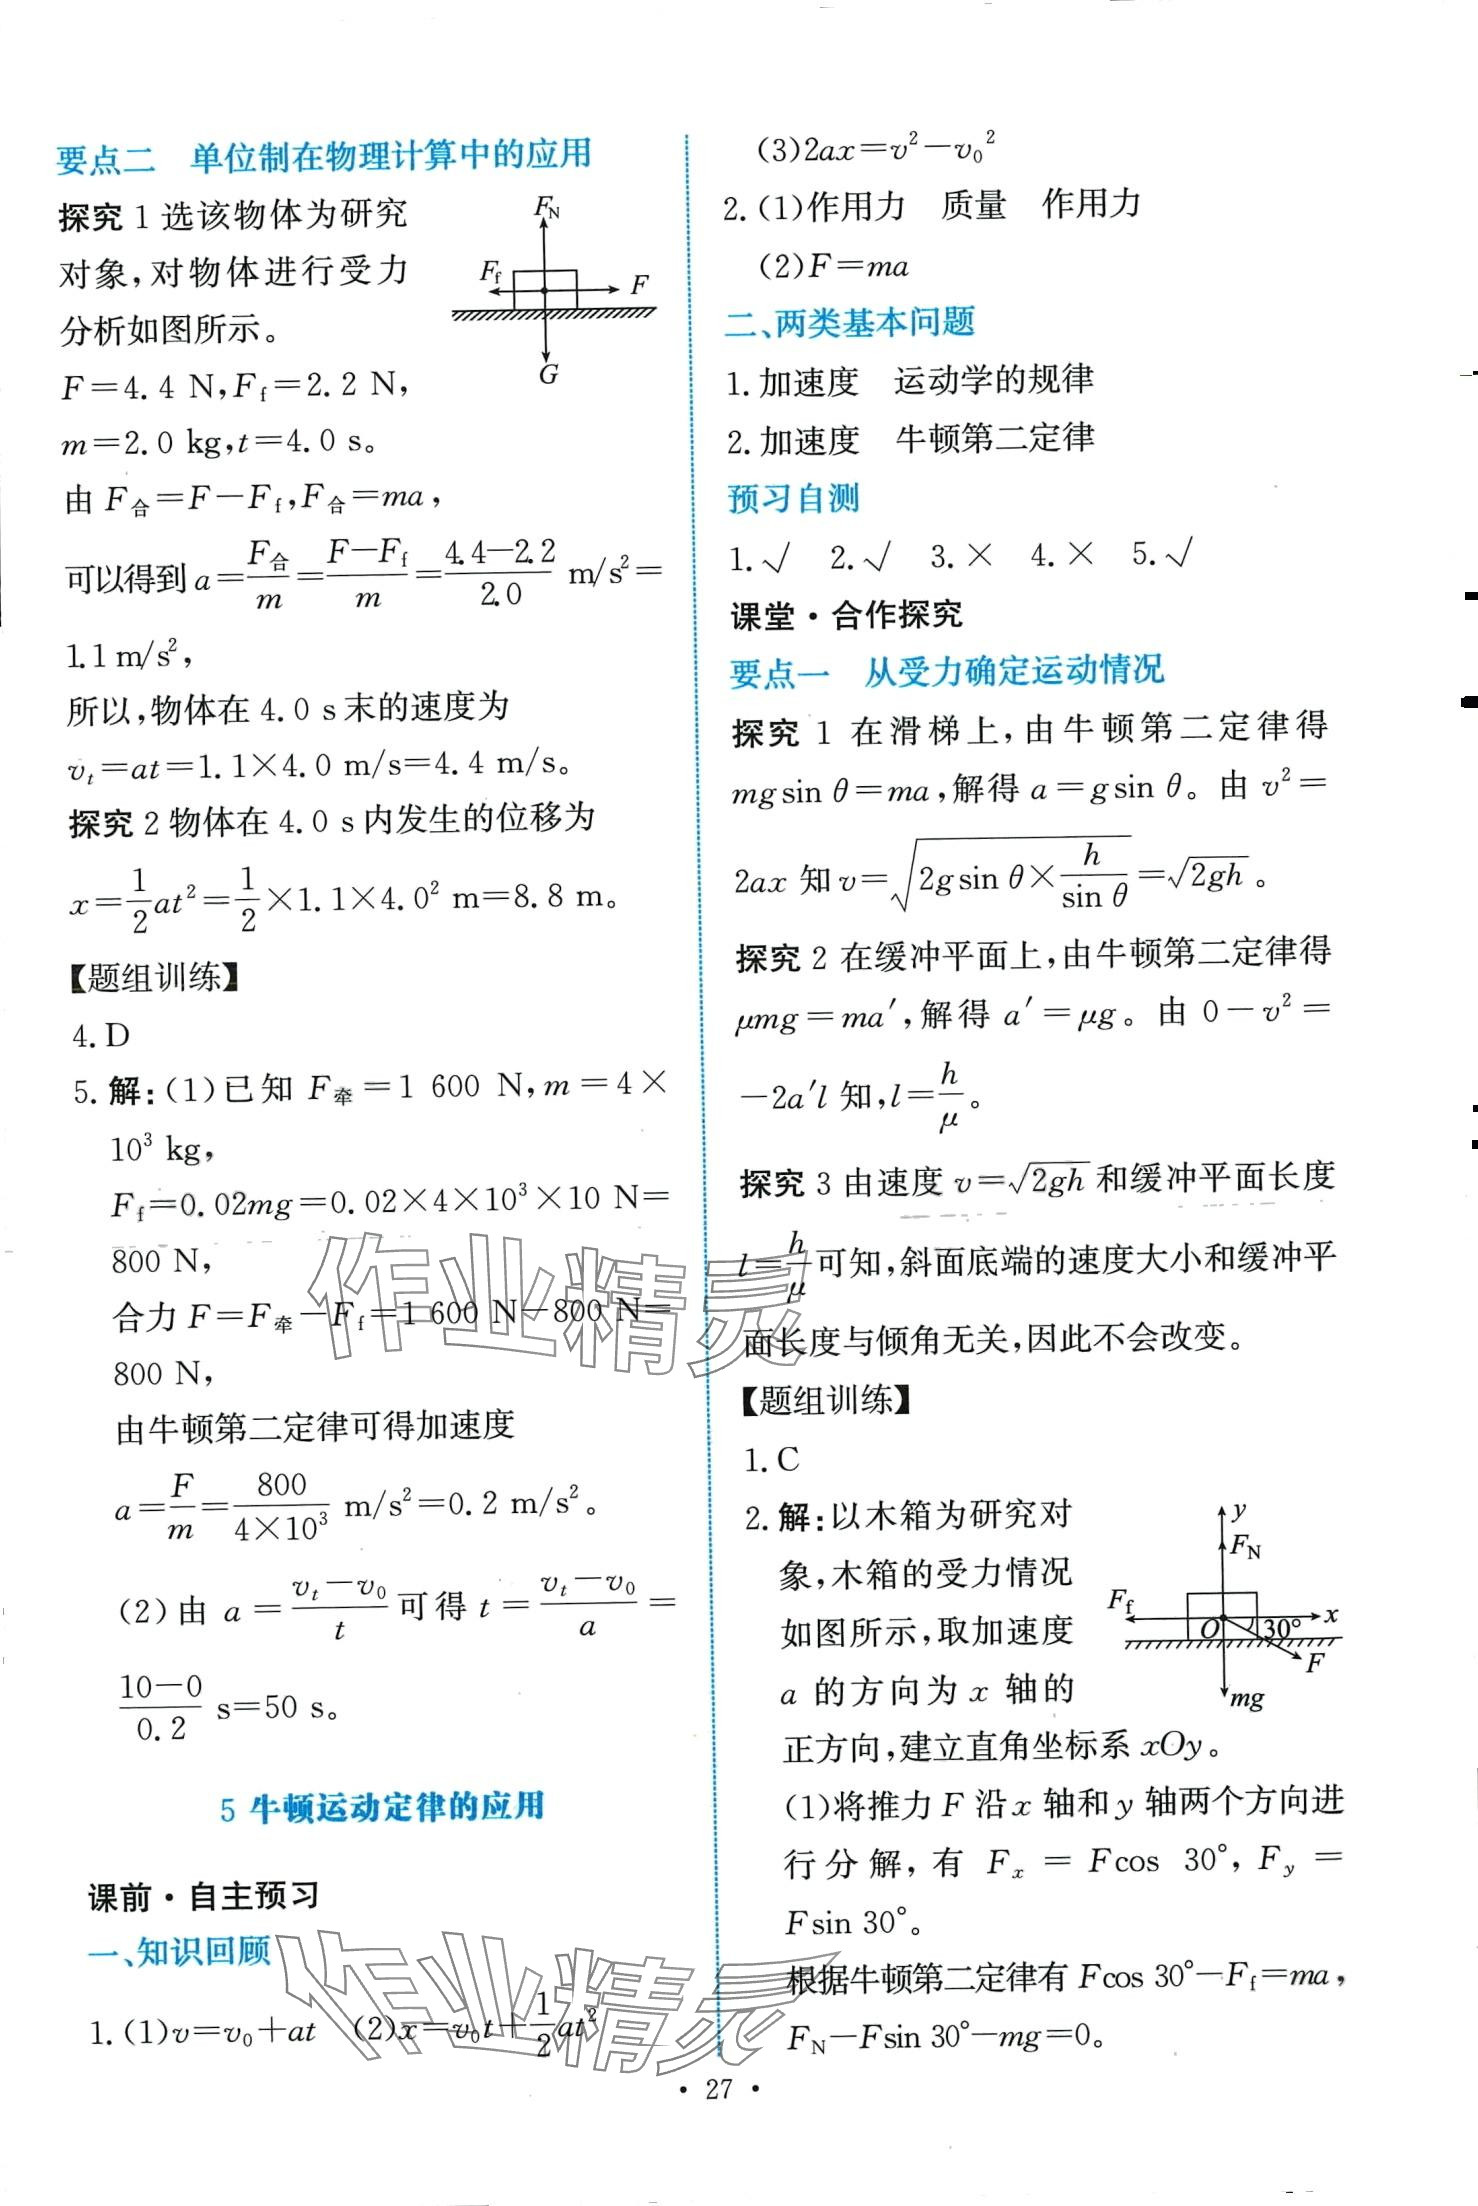 要点二 单位制在物理计算中的应用
探究 1 选该物体为研究
对象,对物体进行受力
分析如图所示。
F_N
F_f
F
G
F=4.4 N,F_f=2.2 N,
m=2.0 kg,t=4.0 s。
由 F_合=F-F_f,F_合=ma,
可以得到 a=F_合/m=(F-F_f)/m=(4.4-2.2)/2.0 m/s²=
1.1 m/s²,
所以,物体在 4.0 s末的速度为
v_t=at=1.1×4.0 m/s=4.4 m/s。
探究 2 物体在 4.0 s内发生的位移为
x=1/2at²=1/2×1.1×4.0² m=8.8 m。
【题组训练】
4. D
5. 解:(1)已知 F_牵=1 600 N,m=4×
10³ kg,
F_f=0.02mg=0.02×4×10³×10 N=
800 N,
合力 F=F_牵-F_f=1 600 N-800 N=
800 N,
由牛顿第二定律可得加速度
a=F/m=800/(4×10³) m/s²=0.2 m/s²。
(2)由 a=(v_t-v_0)/t可得 t=(v_t-v_0)/a=
(10-0)/0.2 s=50 s。
5 牛顿运动定律的应用
课前·自主预习
一、知识回顾
1. (1)v=v_0+at (2)x=v_0t+1/2at²
(3)2ax=v²-v_0²
2. (1)作用力 质量 作用力
(2)F=ma
二、两类基本问题
1. 加速度 运动学的规律
2. 加速度 牛顿第二定律
预习自测
1. √ 2. √ 3. × 4. × 5. √
课堂·合作探究
要点一 从受力确定运动情况
探究 1 在滑梯上,由牛顿第二定律得
mgsin θ=ma,解得 a=gsin θ。由 v²=
2ax 知 v=√(2gsin θ×h/sin θ)=√(2gh)。
探究 2 在缓冲平面上,由牛顿第二定律得
μmg=ma′,解得 a′=μg。由 0-v²=
-2a′l 知,l=h/μ。
探究 3 由速度 v=√(2gh)和缓冲平面长度
l=h/μ可知,斜面底端的速度大小和缓冲平
面长度与倾角无关,因此不会改变。
【题组训练】
1. C
2. 解:以木箱为研究对
象,木箱的受力情况
如图所示,取加速度
a 的方向为 x 轴的
正方向,建立直角坐标系 xOy。
y
F_N
F_f
O
30°
x
F
mg
(1)将推力 F 沿 x 轴和 y 轴两个方向进
行分解,有 F_x=Fcos 30°,F_y=
Fsin 30°。
根据牛顿第二定律有 Fcos 30°-F_f=ma,
F_N-Fsin 30°-mg=0。
·27·
作业精灵
作业精灵